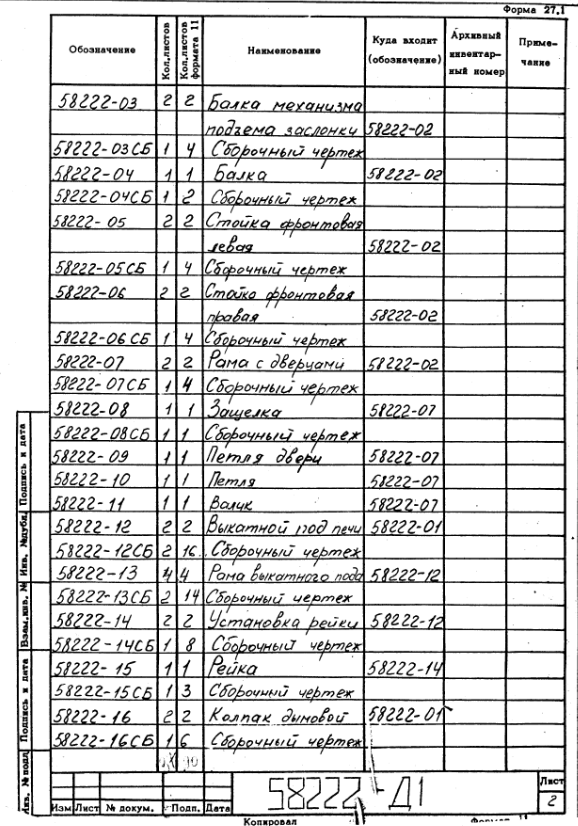 Форма 27.1
Обозначение Кол.листов Кол.листов формата 11 Наименование Куда входит (обозначение) Архивный инвентарный номер Примечание
58222-03 2 2 Балка механизма
подъема заслонки 58222-02
58222-03СБ 1 4 Сборочный чертеж
58222-04 1 1 Балка 58222-02
58222-04СБ 1 2 Сборочный чертеж
58222-05 2 2 Стойка фронтовая
левая 58222-02
58222-05СБ 1 4 Сборочный чертеж
58222-06 2 2 Стойка фронтовая
правая 58222-02
58222-06СБ 1 4 Сборочный чертеж
58222-07 2 2 Рама с дверцами 58222-02
58222-07СБ 1 4 Сборочный чертеж
58222-08 1 1 Защелка 58222-07
58222-08СБ 1 1 Сборочный чертеж
58222-09 1 1 Петля двери 58222-07
58222-10 1 1 Петля 58222-07
58222-11 1 1 Валик 58222-07
58222-12 2 2 Выкатной под печи 58222-01
58222-12СБ 2 16 Сборочный чертеж
58222-13 4 4 Рама выкатного пода 58222-12
58222-13СБ 2 14 Сборочный чертеж
58222-14 2 2 Установка рейки 58222-12
58222-14СБ 1 8 Сборочный чертеж
58222-15 1 1 Рейка 58222-14
58222-15СБ 1 3 Сборочный чертеж
58222-16 2 2 Колпак дымовой 58222-01
58222-16СБ 1 6 Сборочный чертеж
Инв. № подл. Подпись и дата Взам.инв. № Инв. №дубл. Подпись и дата
58222-Д1
Лист
2
Изм Лист № докум. Подп. Дата
Копировал Формат 11